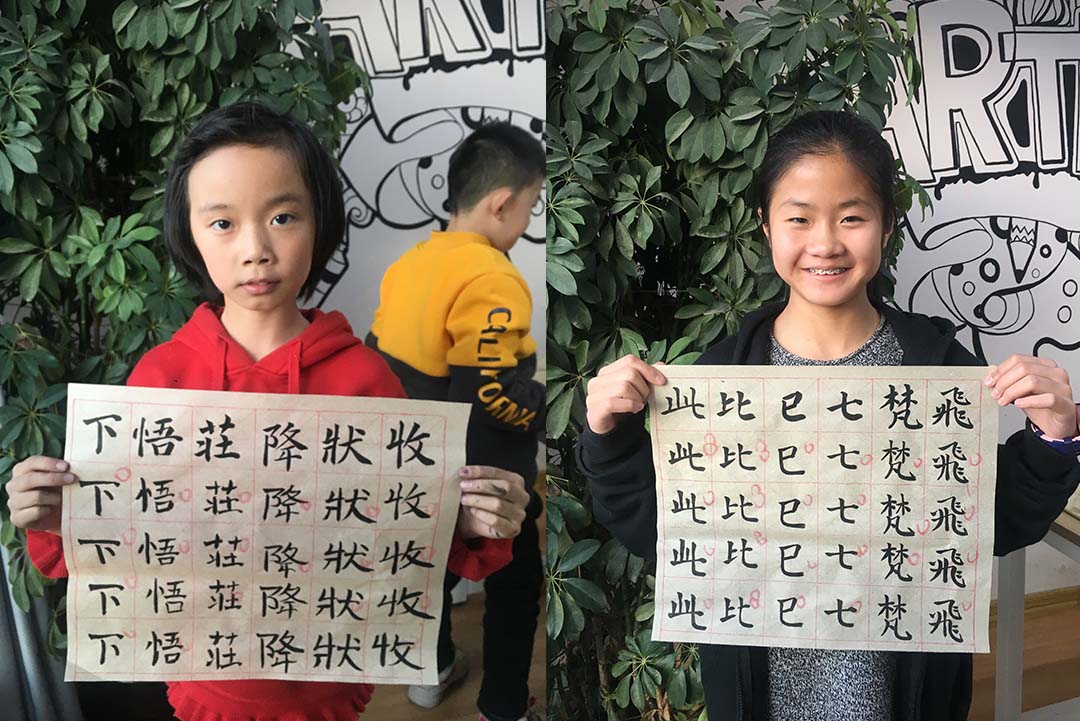 ART
CALIFORNIA
下悟莊降狀收
下悟莊降狀收
下悟莊降狀收
下悟莊降狀收
下悟莊降狀收
ART
此比巳七梵飛
此比巳七梵飛
此比巳七梵飛
此比巳七梵飛
此比巳七梵飛